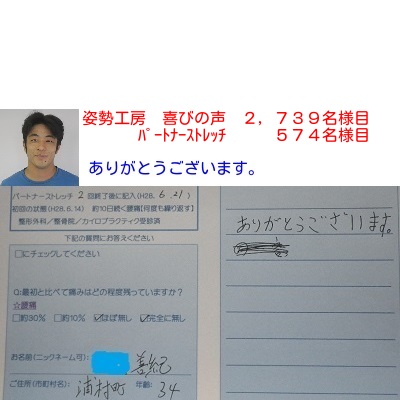 姿勢工房　喜びの声　２，７３９名様目
ﾊﾟｰﾄﾅｰｽﾄﾚｯﾁ　５７４名様目
ありがとうございます。
パートナーストレッチ 2 回終了後に記入(H28. 6 .21)
初回の状態(H28.6.14)　約10日続く腰痛【何度も繰り返す】
整形外科／整骨院／カイロプラクティク受診済
下記の質問にお答えください
□にチェックしてください
Q:最初と比べて痛みはどの程度残っていますか？
☆腰痛
□約30%　□約10%　☑ほぼ無し　☑完全に無し
お名前(ニックネーム可):　善紀
ご住所(市町村名): 浦村町　年齢: 34
ありがとうございます。